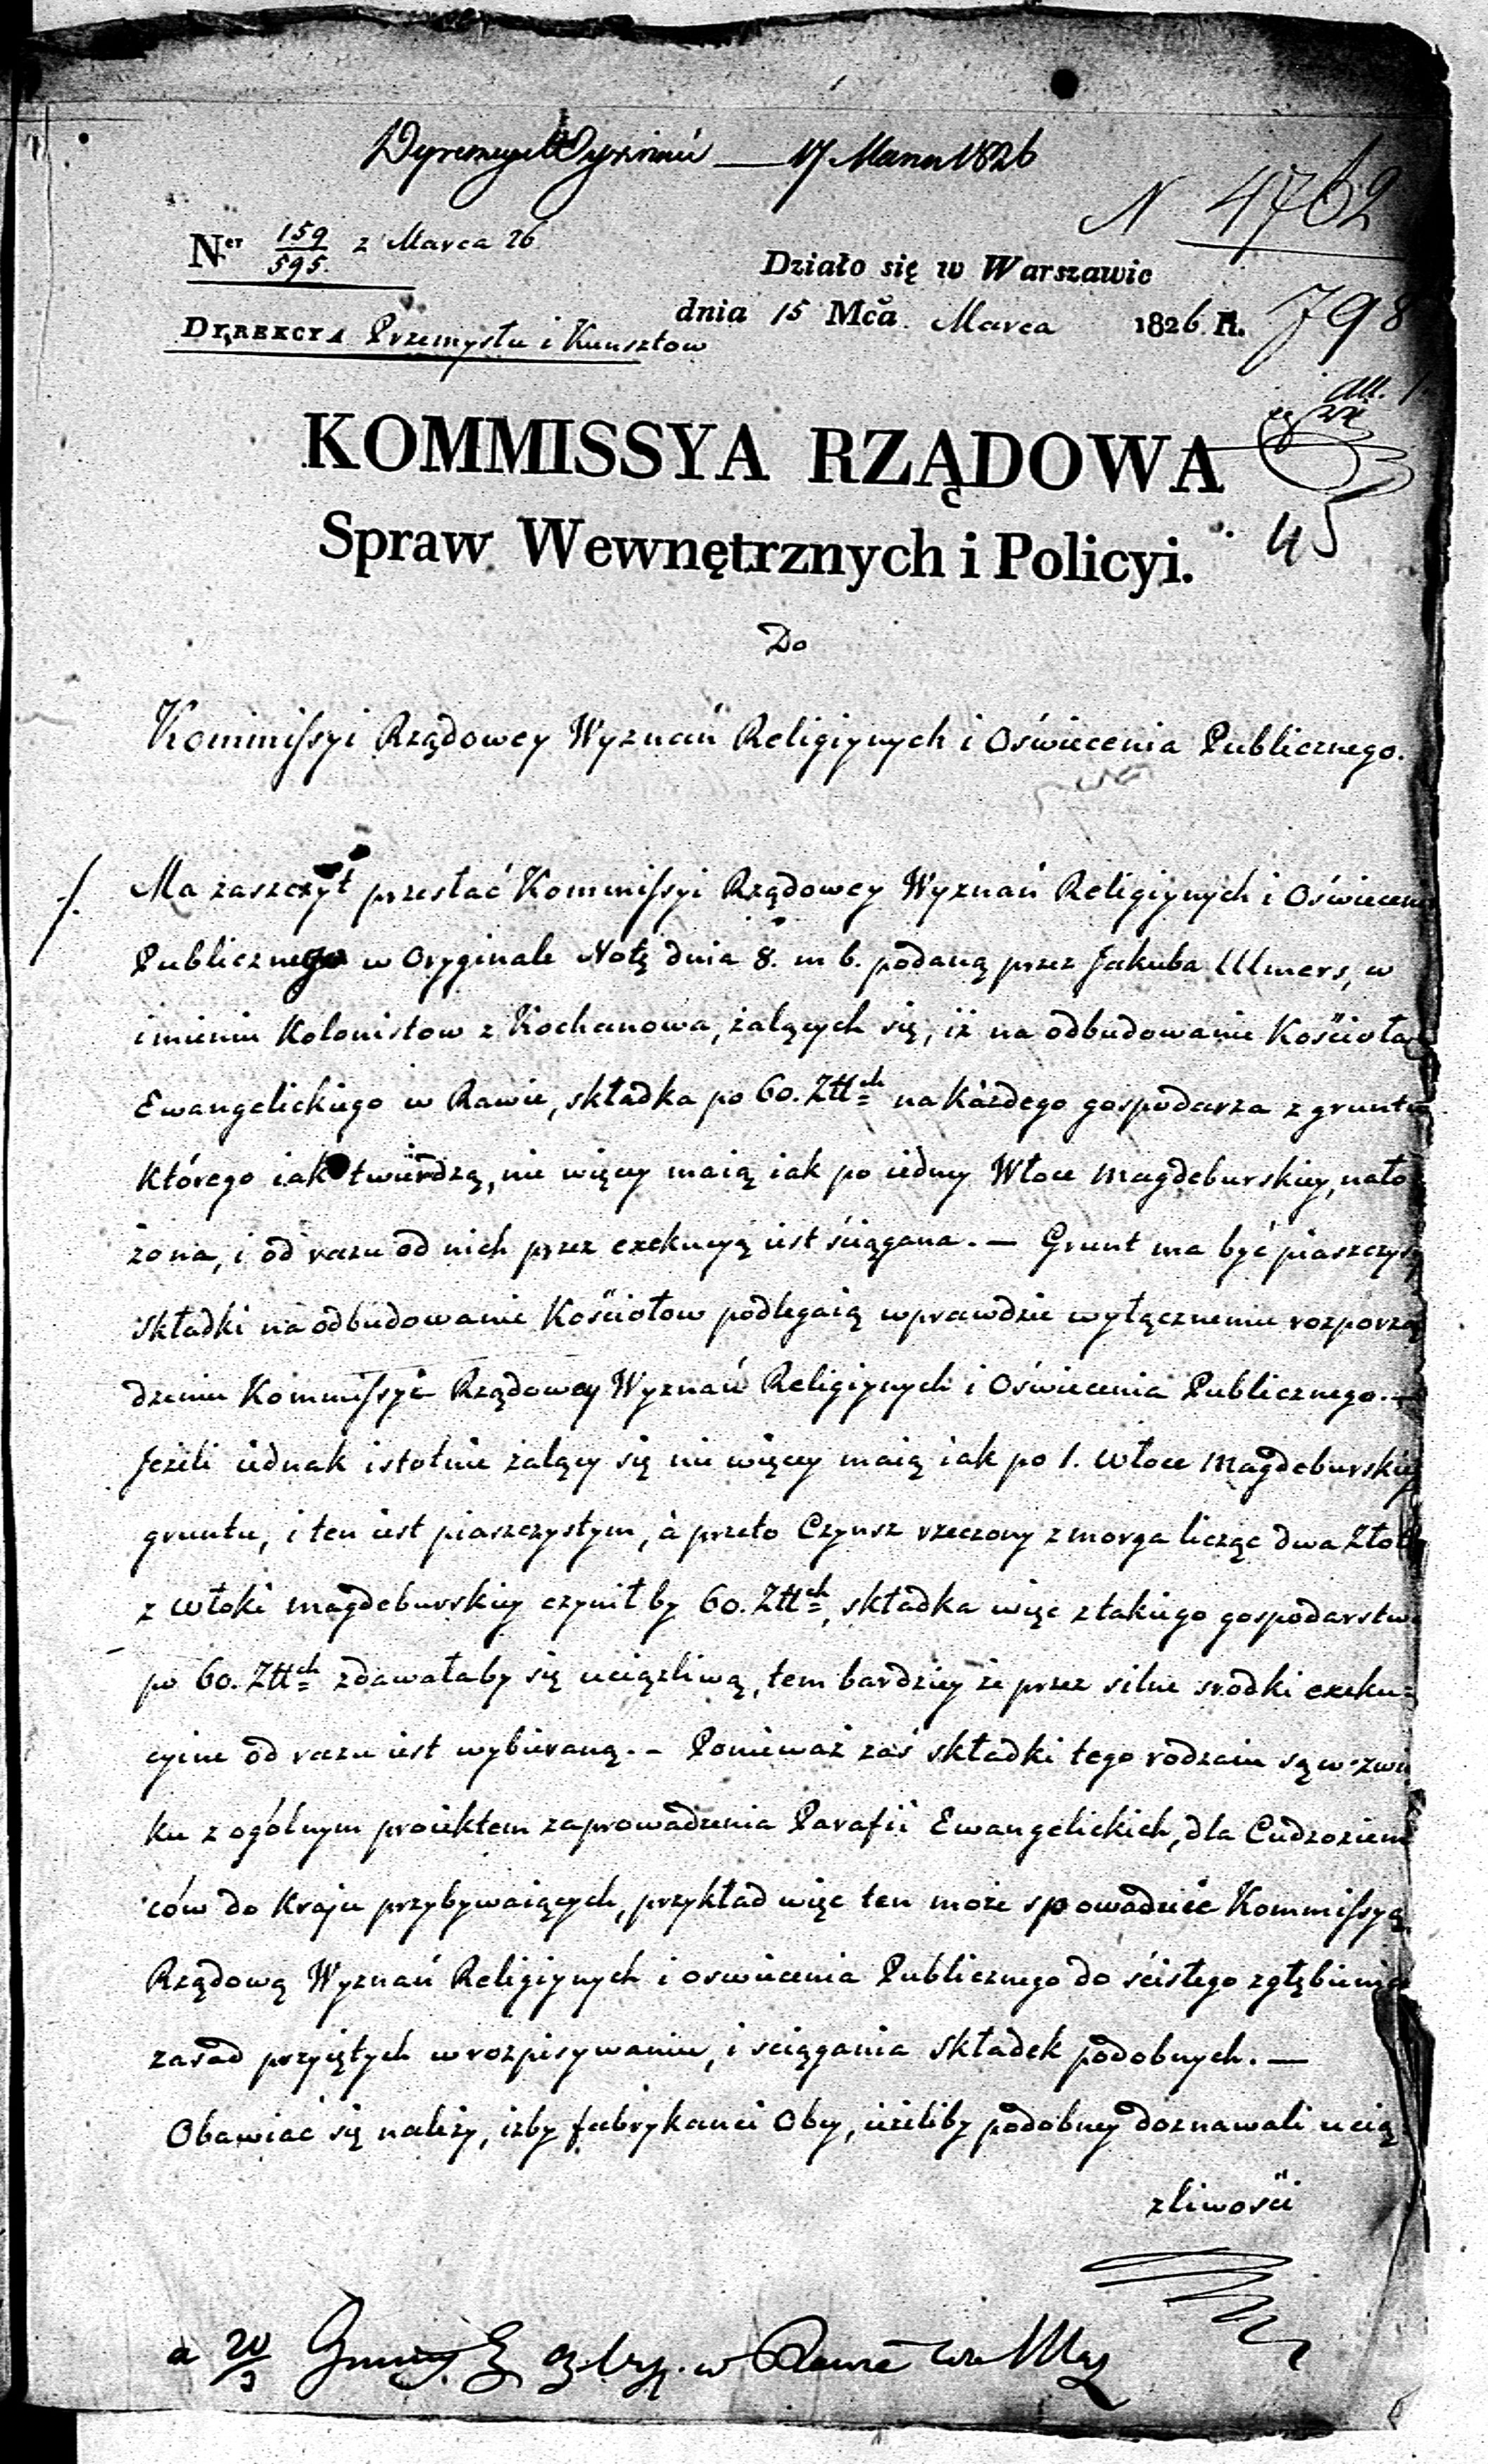 17 Marca 1826
N 4762
Ner 159/595. z Marca 26
Działo się w Warszawie
dnia 15 Mca. Marca 1826. R.
798
DYREKCYA Przemysłu i Kunsztow
KOMMISSYA RZĄDOWA
Spraw Wewnętrznych i Policyi.
45
Do
Kommissyi Rządowey Wyznań Religiynych i Oświecenia Publicznego.
Ma zaszczyt przesłać Kommissyi Rządowey Wyznań Religiynych i Oświecenia
Publicznego w Oryginale Notę dnia 8. m b. podaną przez Jakuba Ulmers, w
imieniu Kolonistow z Kochanowa, żalących się, iż na odbudowanie Kościoła
Ewangelickiego w Rawie, składka po 60. Złłch na każdego gospodarza z gruntu
którego iak twierdzą, nie więcey maią iak po iedney Włoce Magdeburskiey, nało
żona, i od razu od nich przez exekucyą iest ściągana. — Grunt ma być piaszczysty
Składki na odbudowanie Kościołow podlegaią wprawdzie wyłącznemu rozporzą
dzeniu Kommissyi Rządowey Wyznań Religiynych i Oświecenia Publicznego. —
Jeżeli iednak istotnie żalący się nie więcey maią iak po 1. Włoce Magdeburskiey
gruntu, i ten iest piaszczystym, à przeto Czynsz rzeczony z morga licząc dwa Złote
z Włoki magdeburskiey czyniłby 60. Złłch, składka więc z takiego gospodarstwa
po 60. Złłch zdawałaby się uciążliwą, tem bardziey że przez silne srodki exeku=
cyine od razu iest wybieraną. — Ponieważ zaś składki tego rodzaiu są w związ
ku z ogólnym proiektem zaprowadzenia Parafii Ewangelickich, dla Cudzoziem
ców do Kraju przybywaiących, przykład więc ten może spowadzić Kommissyą
Rządową Wyznań Religiynych i oswiecenia Publicznego do ścisłego zgłębienia
zasad przyiętych w rozpisywaniu, i sciągania składek podobnych. —
Obawiać się należy, iżby fabrykanci Obcy, ieżeliby podobney doznawali ucią
zliwości